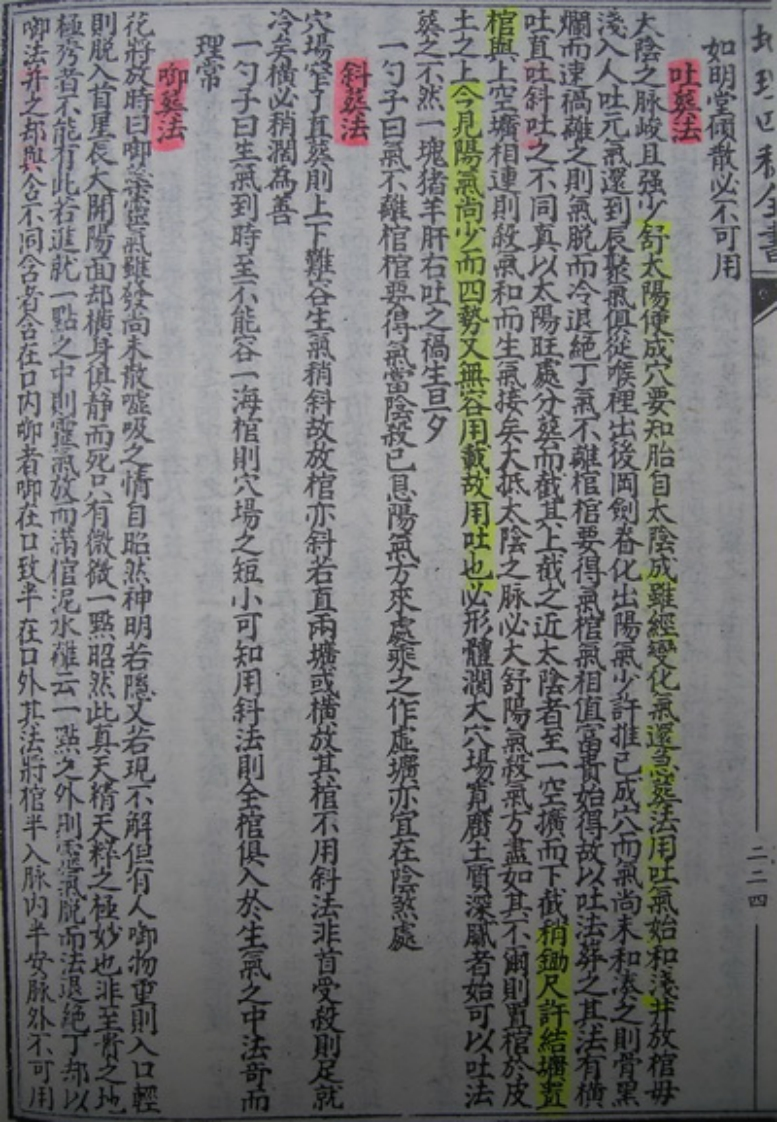 如明堂傾散必不可用
吐葬法
太陰之脉峻且强少舒太陽便成穴要知胎自太陰成雖經變化氣還急葬法用吐氣始和淺井放棺毋
淺入人吐元氣還到辰聚氣俱從喉裡出後岡劍脊化出陽氣少許推已成穴而氣尚未和湊之則骨黑
爛而速禍離之則氣脫而冷退絕丁氣不離棺棺要得氣棺氣相值富貴始得故以吐法葬之其法有橫
吐直吐斜吐之不同真以太陽旺處分葬而截其上截之近太陰者至一空壙而下截稍鋤尺許結壙置
棺與上空壙相連則殺氣和而生氣接矣大抵太陰之脉必大舒陽氣殺氣方盡如其不爾則置棺於皮
土之上今見陽氣尚少而四勢又無容用截故用吐也必形體濶大穴場寬廣土質深膩者始可以吐法
葬之不然一塊猪羊肝右吐之禍生旦夕
一勺子曰氣不離棺棺要得氣當陰殺已息陽氣方來處乘之作虛壙亦宜在陰煞處
斜葬法
穴場窄了直葬則上下難容生氣稍斜故放棺亦斜若直兩壙或橫放其棺不用斜法非首受殺則足就
冷矣橫必稍濶為善
一勺子曰生氣到時至不能容一海棺則穴場之短小可知用斜法則全棺俱入於生氣之中法奇而
理常
啣葬法
花將放時曰啣蘂靈氣雖發尚未散噓吸之情自昭然神明若隱又若現不解但有人啣物重則入口輕
則脫入首星辰大開陽面却橫身俱靜而死只有微微一點昭然此真天精天粹之極妙也非至貴之地
極秀者不能有此若進就一點之中則靈氣放而滿棺泥水離云一點之外則靈氣脫而法退絕丁却以
啣法井之却與含不同含者含在口内啣者啣在口致半在口外其法將棺半入脉内半安脉外不可用
二二四